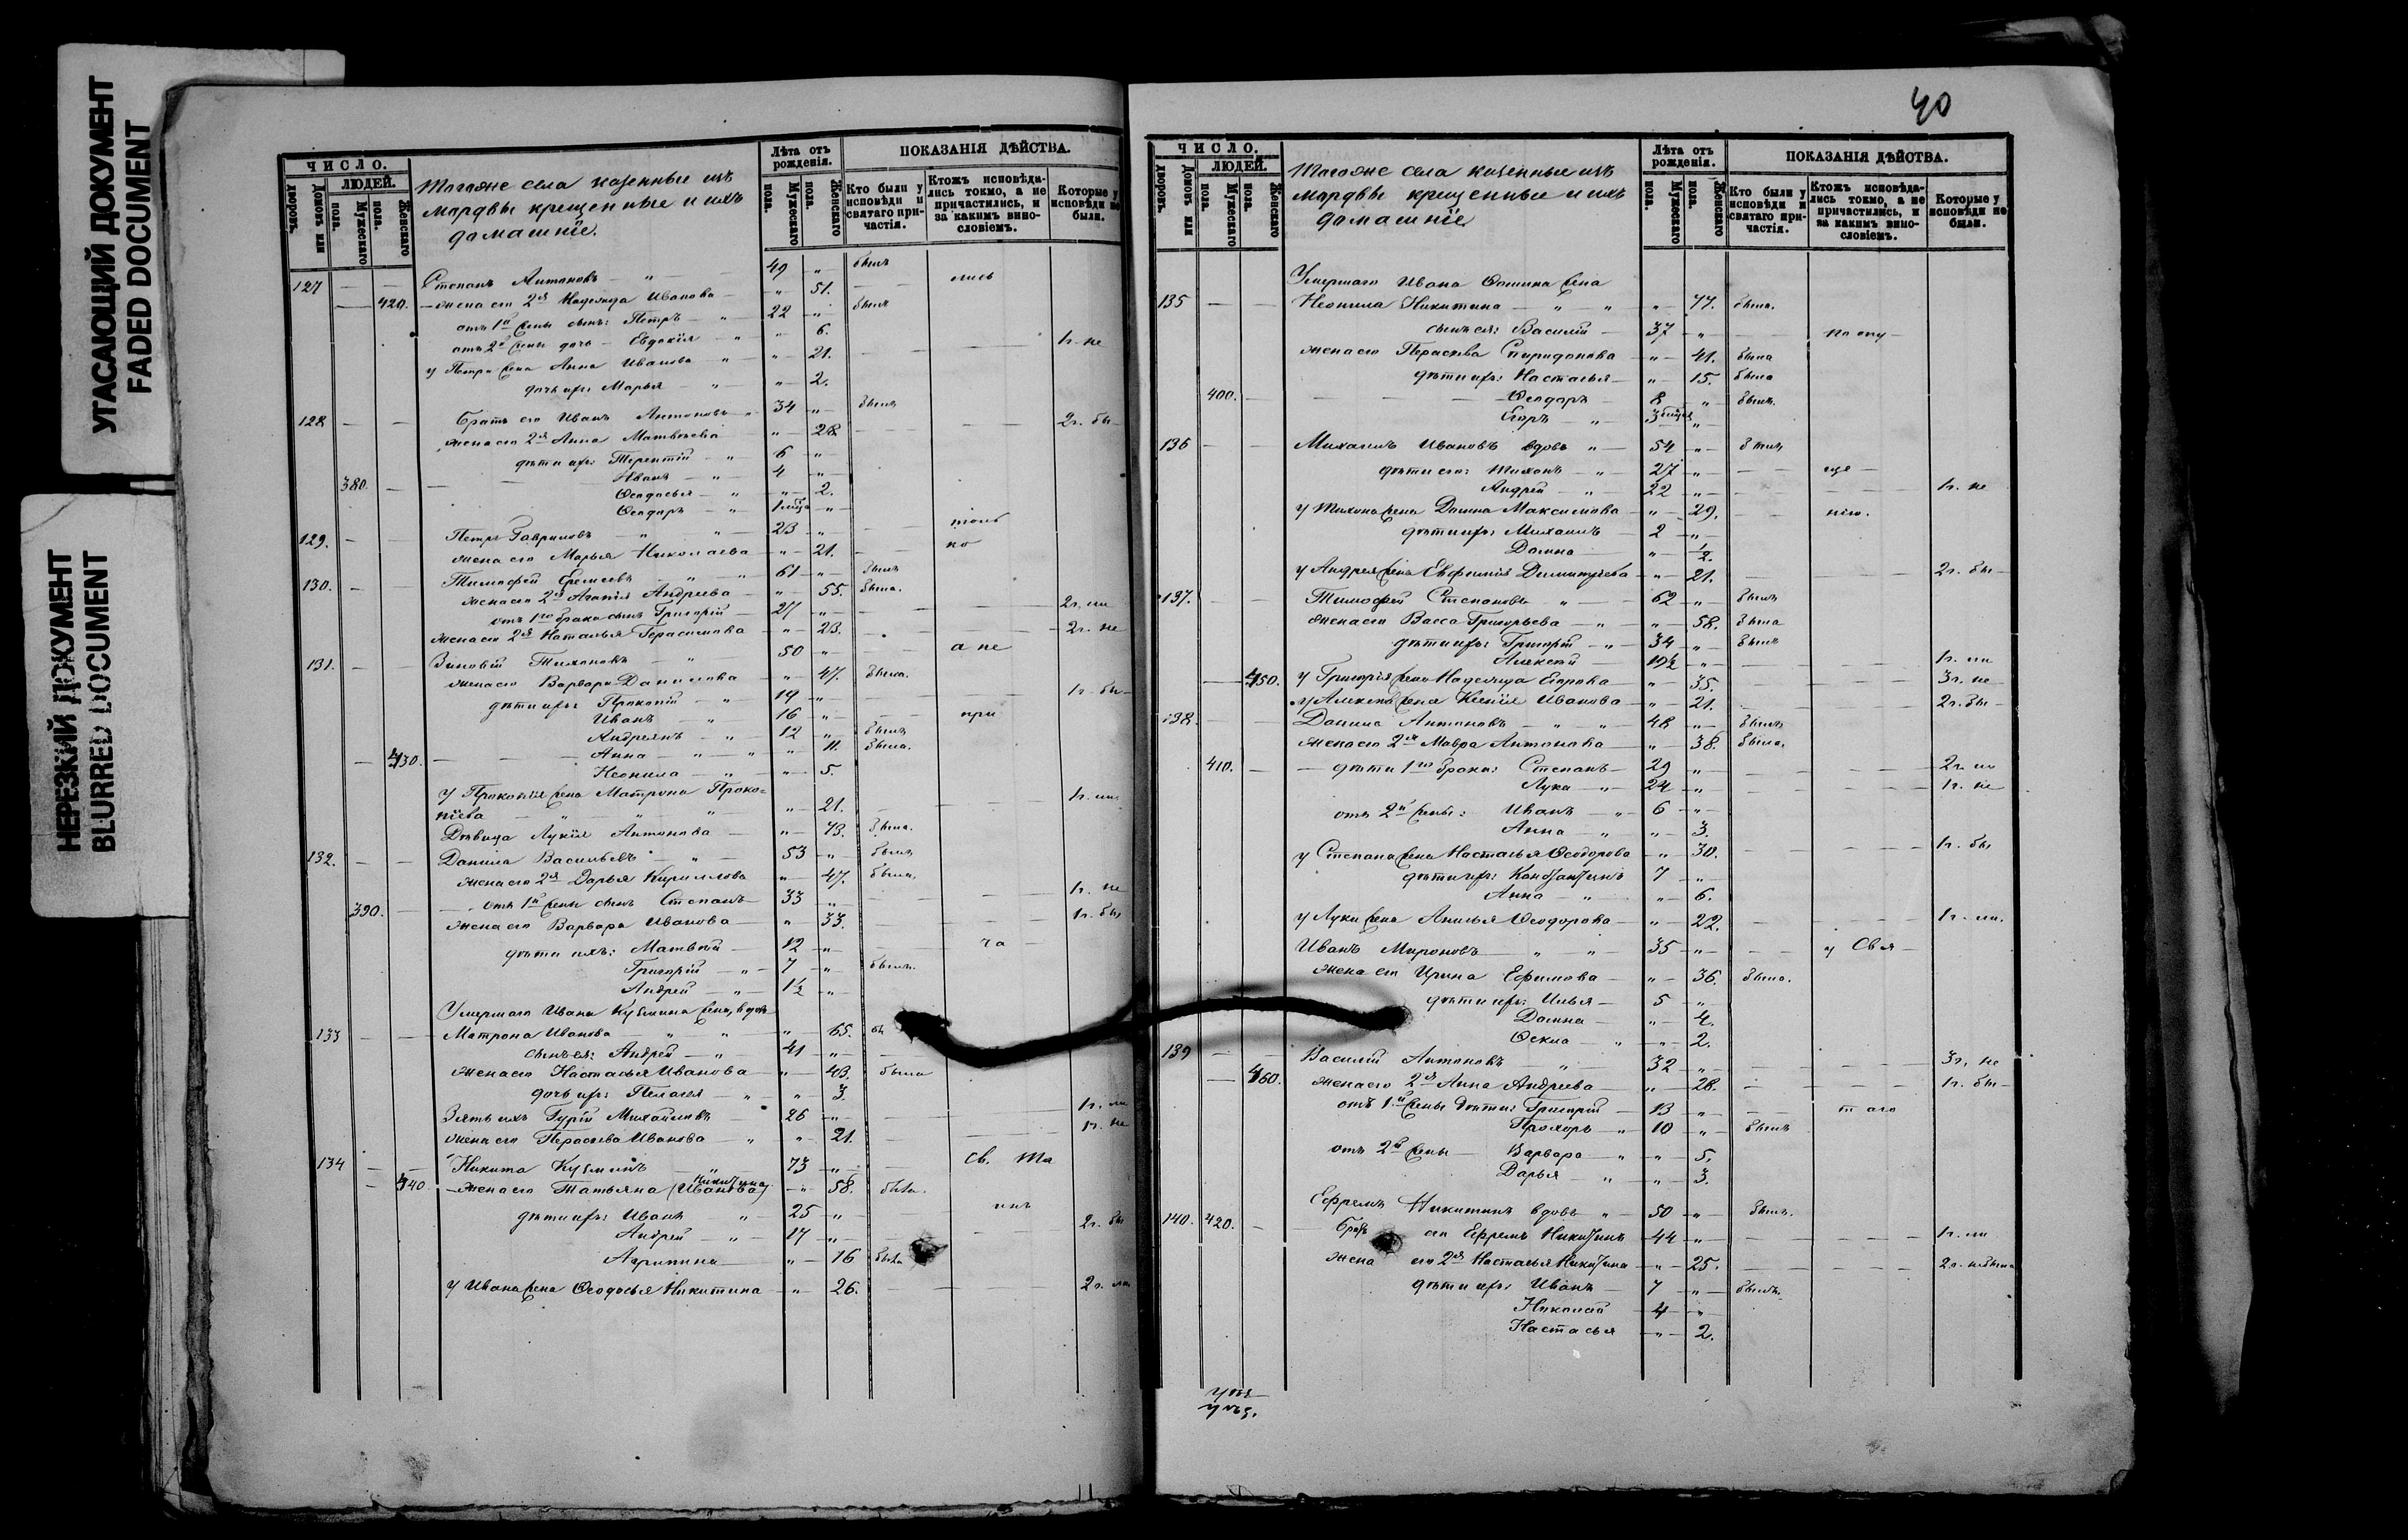 УГАСАЮЩИЙ ДОКУМЕНТ
FADED DOCUMENT
НЕРЕЗКИЙ ДОКУМЕНТ
BLURRED DOCUMENT
ЧИСЛО.
ЛЮДЕЙ.
Домовъ или дворовъ.
Мужескаго пола.
Женскаго пола.
Тогоже села казенные изъ
мордвы крещенные и ихъ
домашніе.
Лѣта отъ рожденія.
Мужескаго пола.
Женскаго пола.
ПОКАЗАНІЯ ДѢЙСТВА.
Кто были у исповѣди и святаго причастія.
Ктожъ исповѣдались токмо, а не причастились, и за какимъ винословіемъ.
Которые у исповѣди не были.
127 — — Степанъ Антоновъ — " — 49 — " — былъ
— 420. — жена его 2я Надежда Иванова — " — 51. — — лись
отъ 1й жены сынъ: Петръ — " 22 — " — былъ
отъ 2й жены дочь — Евдокія — " — " — 6.
у Петра жена Анна Иванова " — " — 21. — — — 1г. не
дочь ихъ: Марья — " — " — 2.
128 — — Братъ его Иванъ Антоновъ " 34 — " — былъ
жена его 2я Анна Матвѣева — " — 28 — — — 2г. бы
дѣти ихъ: Терентій — " — 6 — " —
380. — — Иванъ — " — 4 — " —
Ѳедосья — " — " — 2.
Ѳедоръ — " — 1 мѣся — " —
129. — — Петръ Гавриловъ — " — " — 23 — " — — толь
жена его Марья Николаева — " — 21. — — ко
130. — — Тимофей Еремеевъ — " — " 61 — " — былъ
жена его 2я Агапія Андреева — " — 55. была.
отъ 1го брака сынъ Григорій 27 — " — — — 2г. ли
жена его 2я Наталья Герасимова — " — 23. — — — 2г. не
131. — — Зиновій Тихоновъ — " — 50 — " — — а не
жена его Варвара Данилова — " — 47. была.
дѣти ихъ: Прокопій — " — 19 — " — — — 1г. бы
Иванъ — " — 16 — " — — при
Андреянъ — " — 12 — " — былъ
— 430. — — Анна — " — " — " — 11. была.
Неонила — " — " — 5.
у Прокопія жена Матрона Проко=
піева — " — " — " — " — 21. — — — 1г. ли
Дѣвица Лукія Антонова — " — 73. была.
132. — — Данила Васильевъ — " — 53 — " — былъ
жена его 2я Дарья Кириллова " — 47. была.
390. — — отъ 1й жены сынъ Степанъ — 33 — " — — — 1г. не
жена его Варвара Иванова — " — 33. — — — 1г. бы
дѣти ихъ: Матвѣй — 12 — " — — ча
Григорій — " — 7 — " — былъ.
Андрей — " — 1½ — " —
Умершаго Ивана Кузмина жена, вдова
133 — — Матрона Иванова — " — " — " — 65. бы
сынъ ея: Андрей — " 41 — " — —
жена его Настасья Иванова — " — 43. была
дочь ихъ: Пелагея — " — " — 3.
Зять ихъ Гурій Михайловъ 26 — " — — — 1г. ли
жена его Параскева Иванова — " " — 21. — — — 1г. не
134 — — Никита Кузминъ — " — 73 — " — — св. Та
Никитина
— 440. — жена его Татьяна (Иванова) — " — 58. была.
дѣти ихъ: Иванъ — " — 25 — " — — инъ
Андрей — " — 17 — " — — — 2г. бы
Агрипина — " — 16 была
у Ивана жена Ѳеодосья Никитина — " — 26. — — — 2г. ли
40
ЧИСЛО.
ЛЮДЕЙ.
Домовъ или дворовъ.
Мужескаго пола.
Женскаго пола.
Тогоже села казенные изъ
мордвы крещенные и ихъ
домашніе
Лѣта отъ рожденія.
Мужескаго пола.
Женскаго пола.
ПОКАЗАНІЯ ДѢЙСТВА.
Кто были у исповѣди и святаго причастія.
Ктожъ исповѣдались токмо, а не причастились, и за какимъ винословіемъ.
Которые у исповѣди не были.
Умершаго Ивана Ѳомина жена
135 — — Неонила Никитина — " — " — " — 77. была.
сынъ ея: Василій — 37 — " — — по опу
жена его Параскева Спиридонова — " — 41. была
дѣти ихъ: Настасья — " — 15. была
400. — — Ѳедоръ — 8 — " — былъ.
Егоръ — " — 3 мѣсяц "
136 — — Михаилъ Ивановъ вдовъ " — 54 — " — былъ
дѣти его: Тихонъ — " — 27 — " — — още
Андрей — " — 22 — " — — — 1г. не
у Тихона жена Домна Максимова — " — 29. — — нію.
дѣти ихъ: Михаилъ — 2 — " —
Домна — " — ½.
у Андрея жена Евфимія Димитріева — " — 21. — — — 2г. бы
137. — — Тимофей Степановъ — " — 62 — " — былъ
жена его Васса Григорьева — " — " — 58. была
дѣти ихъ: Григорій — " — 34 — " — былъ
Алексѣй — 19½ — " — — — 1г. ли
— 450. у Григорія жена Надежда Егорова — " — 35. — — — 3г. не
у Алексѣя жена Ксенія Иванова — " — 21. — — — 2г. бы
138. — — Данила Антоновъ — " — " 48 — " — былъ
жена его 2я Мавра Антонова — " — 38. была.
410. — — дѣти 1го брака: Степанъ — 29 — " — — — 2г. ли
Лука — " — 24 — " — — — 1г. не
отъ 2й жены: Иванъ — " 6 — " —
Анна — " — " — 3.
у Степана жена Настасья Ѳеодорова — " — 30. — — — 1г. бы
дѣти ихъ: Константинъ 7 — " —
Анна — " — " — 6.
у Луки жена Анисья Ѳеодорова — " — 22. — — — 1г. ли.
Иванъ Мироновъ — " — " — 35 — " — — у Свя
жена его Ирина Ефимова — " — 36. была.
дѣти ихъ: Илья — 5 — " —
Домна — " — 4.
Ѳекла — " — " — 2.
139 — — Василій Антоновъ — " — 32 — " — — — 3г. не
— 460. жена его 2я Анна Андреева — " — 28. — — — 1г. бы
отъ 1й жены дѣти: Григорій — 13 — " — — таго
Прохоръ — " 10 — " — былъ
отъ 2й жены — Варвара — " — " — 5.
Дарья — " — " — 3.
Ефремъ Никитинъ вдовъ " — 50 — " — былъ.
140. 420. — — братъ его Ефремъ Никитинъ — 44 — " — — — 1г. ли
жена его 2я Настасья Никитина — " — 25. — — — 2г. небыла
дѣти ихъ: Иванъ — 7 — " — былъ.
Николай — 4 — " —
Настасья — " — 2.